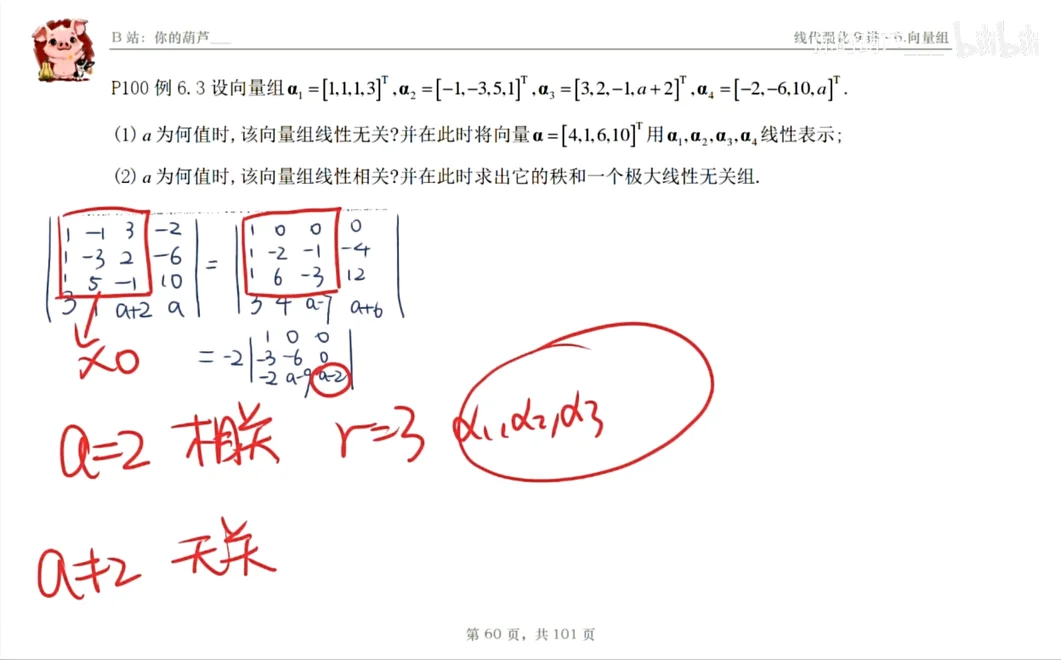 B 站：你的葫芦___
线代强化 9 讲-6.向量组
bilibili
P100 例 6.3 设向量组 α₁=[1,1,1,3]ᵀ,α₂=[-1,-3,5,1]ᵀ,α₃=[3,2,-1,a+2]ᵀ,α₄=[-2,-6,10,a]ᵀ.
(1) a 为何值时,该向量组线性无关?并在此时将向量 α=[4,1,6,10]ᵀ 用 α₁,α₂,α₃,α₄ 线性表示;
(2) a 为何值时,该向量组线性相关?并在此时求出它的秩和一个极大线性无关组.
| 1 -1 3 -2 | = | 1 0 0 0 |
| 1 -3 2 -6 | | 1 -2 -1 -4 |
| 1 5 -1 10 | | 1 6 -3 12 |
| 3 1 a+2 a | | 3 4 a-7 a+6 |
| 1 0 0 |
= -2 | -3 -6 0 |
| -2 a-9 a-2 |
a=2 相关 r=3 α₁,α₂,α₃
a≠2 无关
第 60 页，共 101 页